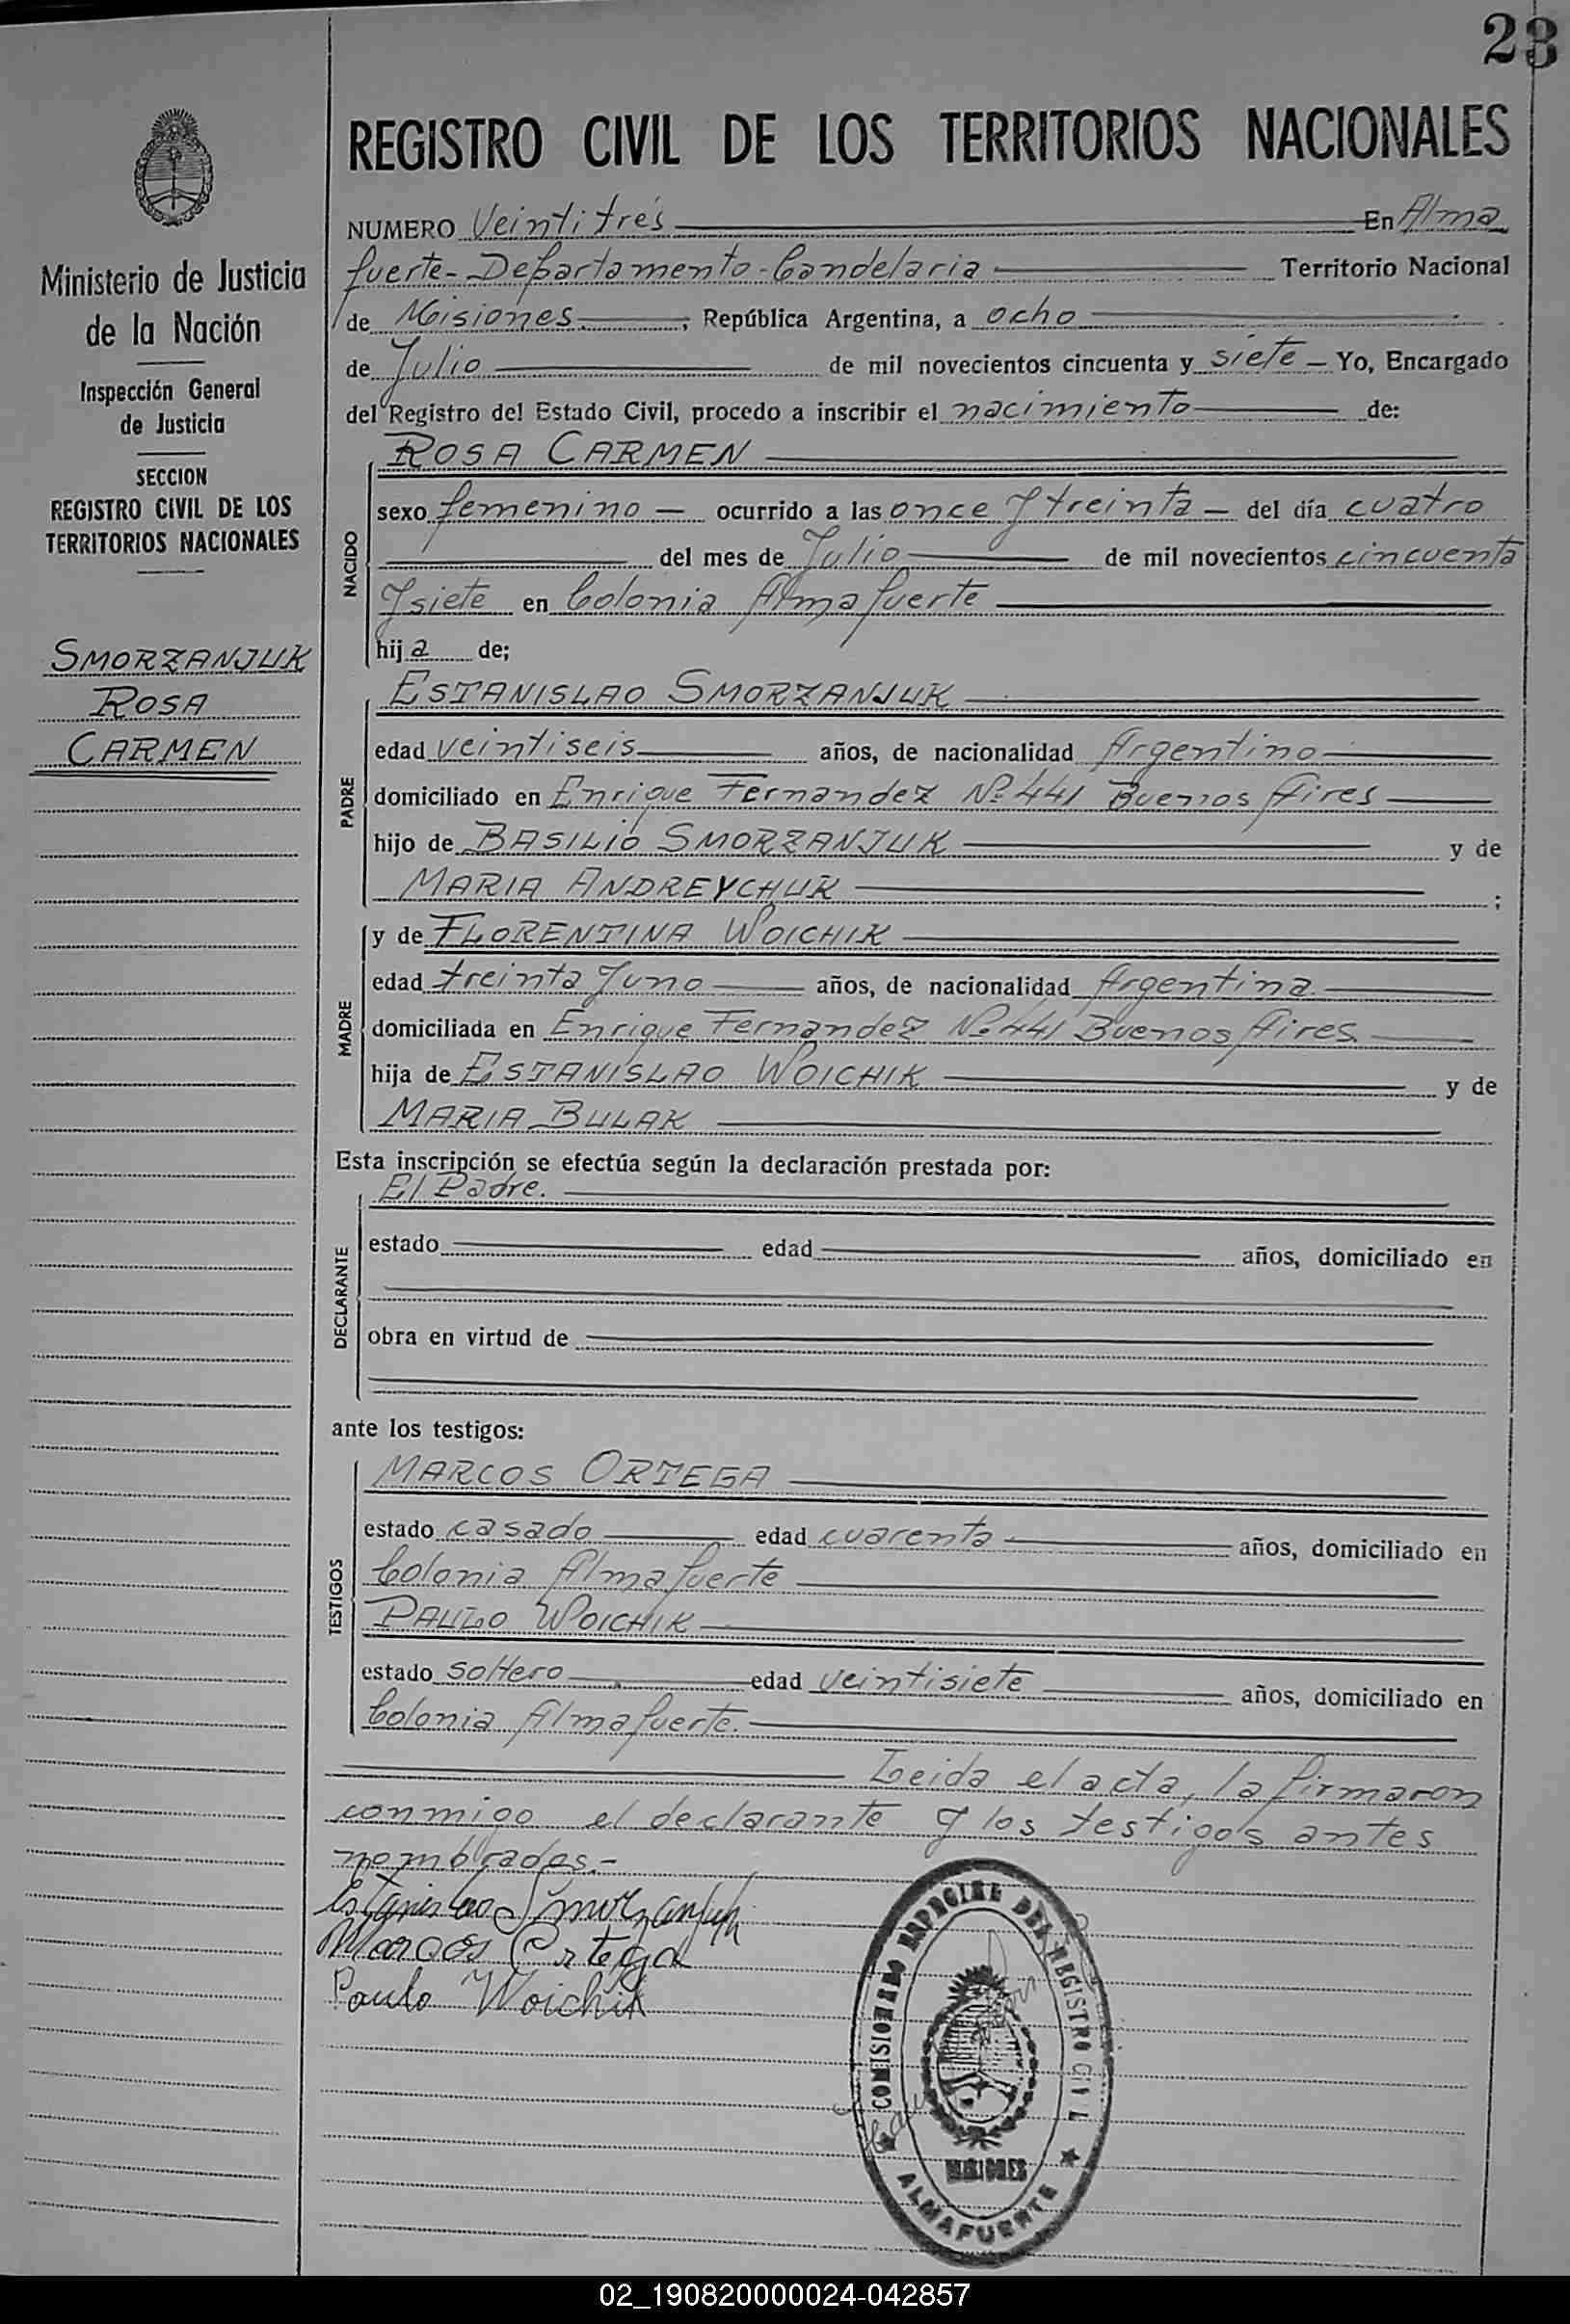 23
REGISTRO CIVIL DE LOS TERRITORIOS NACIONALES
Ministerio de Justicia
de la Nación
Inspección General
de Justicia
SECCION
REGISTRO CIVIL DE LOS
TERRITORIOS NACIONALES
SMORZANJUK
ROSA
CARMEN
NUMERO Veintitrés En Alma
fuerte - Departamento - Candelaria Territorio Nacional
de Misiones ; República Argentina, a ocho
de Julio de mil novecientos cincuenta y siete - Yo, Encargado
del Registro del Estado Civil, procedo a inscribir el nacimiento de:
NACIDO
ROSA CARMEN
sexo femenino - ocurrido a las once y treinta - del día cuatro
del mes de Julio de mil novecientos cincuenta
y siete en Colonia Almafuerte
hija de;
PADRE
ESTANISLAO SMORZANJUK
edad veintiseis años, de nacionalidad Argentino
domiciliado en Enrique Fernandez Nº 441 Buenos Aires
hijo de BASILIO SMORZANJUK y de
MARIA ANDREYCHUK ;
MADRE
y de FLORENTINA WOICHIK
edad treinta y uno años, de nacionalidad Argentina
domiciliada en Enrique Fernandez Nº 441 Buenos Aires
hija de ESTANISLAO WOICHIK y de
MARIA BULAK
Esta inscripción se efectúa según la declaración prestada por:
DECLARANTE
El Padre.
estado edad años, domiciliado en
obra en virtud de
ante los testigos:
TESTIGOS
MARCOS ORTEGA
estado casado edad cuarenta años, domiciliado en
Colonia Almafuerte
PAULO WOICHIK
estado soltero edad veintisiete años, domiciliado en
Colonia Almafuerte.
Leida el acta, la firmaron
conmigo el declarante y los testigos antes
nombrados.-
Estanislao Smorzanjuk
Marcos Ortega
Paulo Woichik
COMISIONADO ESPECIAL DEL REGISTRO CIVIL
MISIONES
ALMAFUERTE
02_190820000024-042857